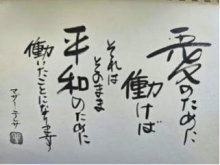 愛のために
働けば
それは
そのまま
平和のために
働いたことになります
マザーテレサ